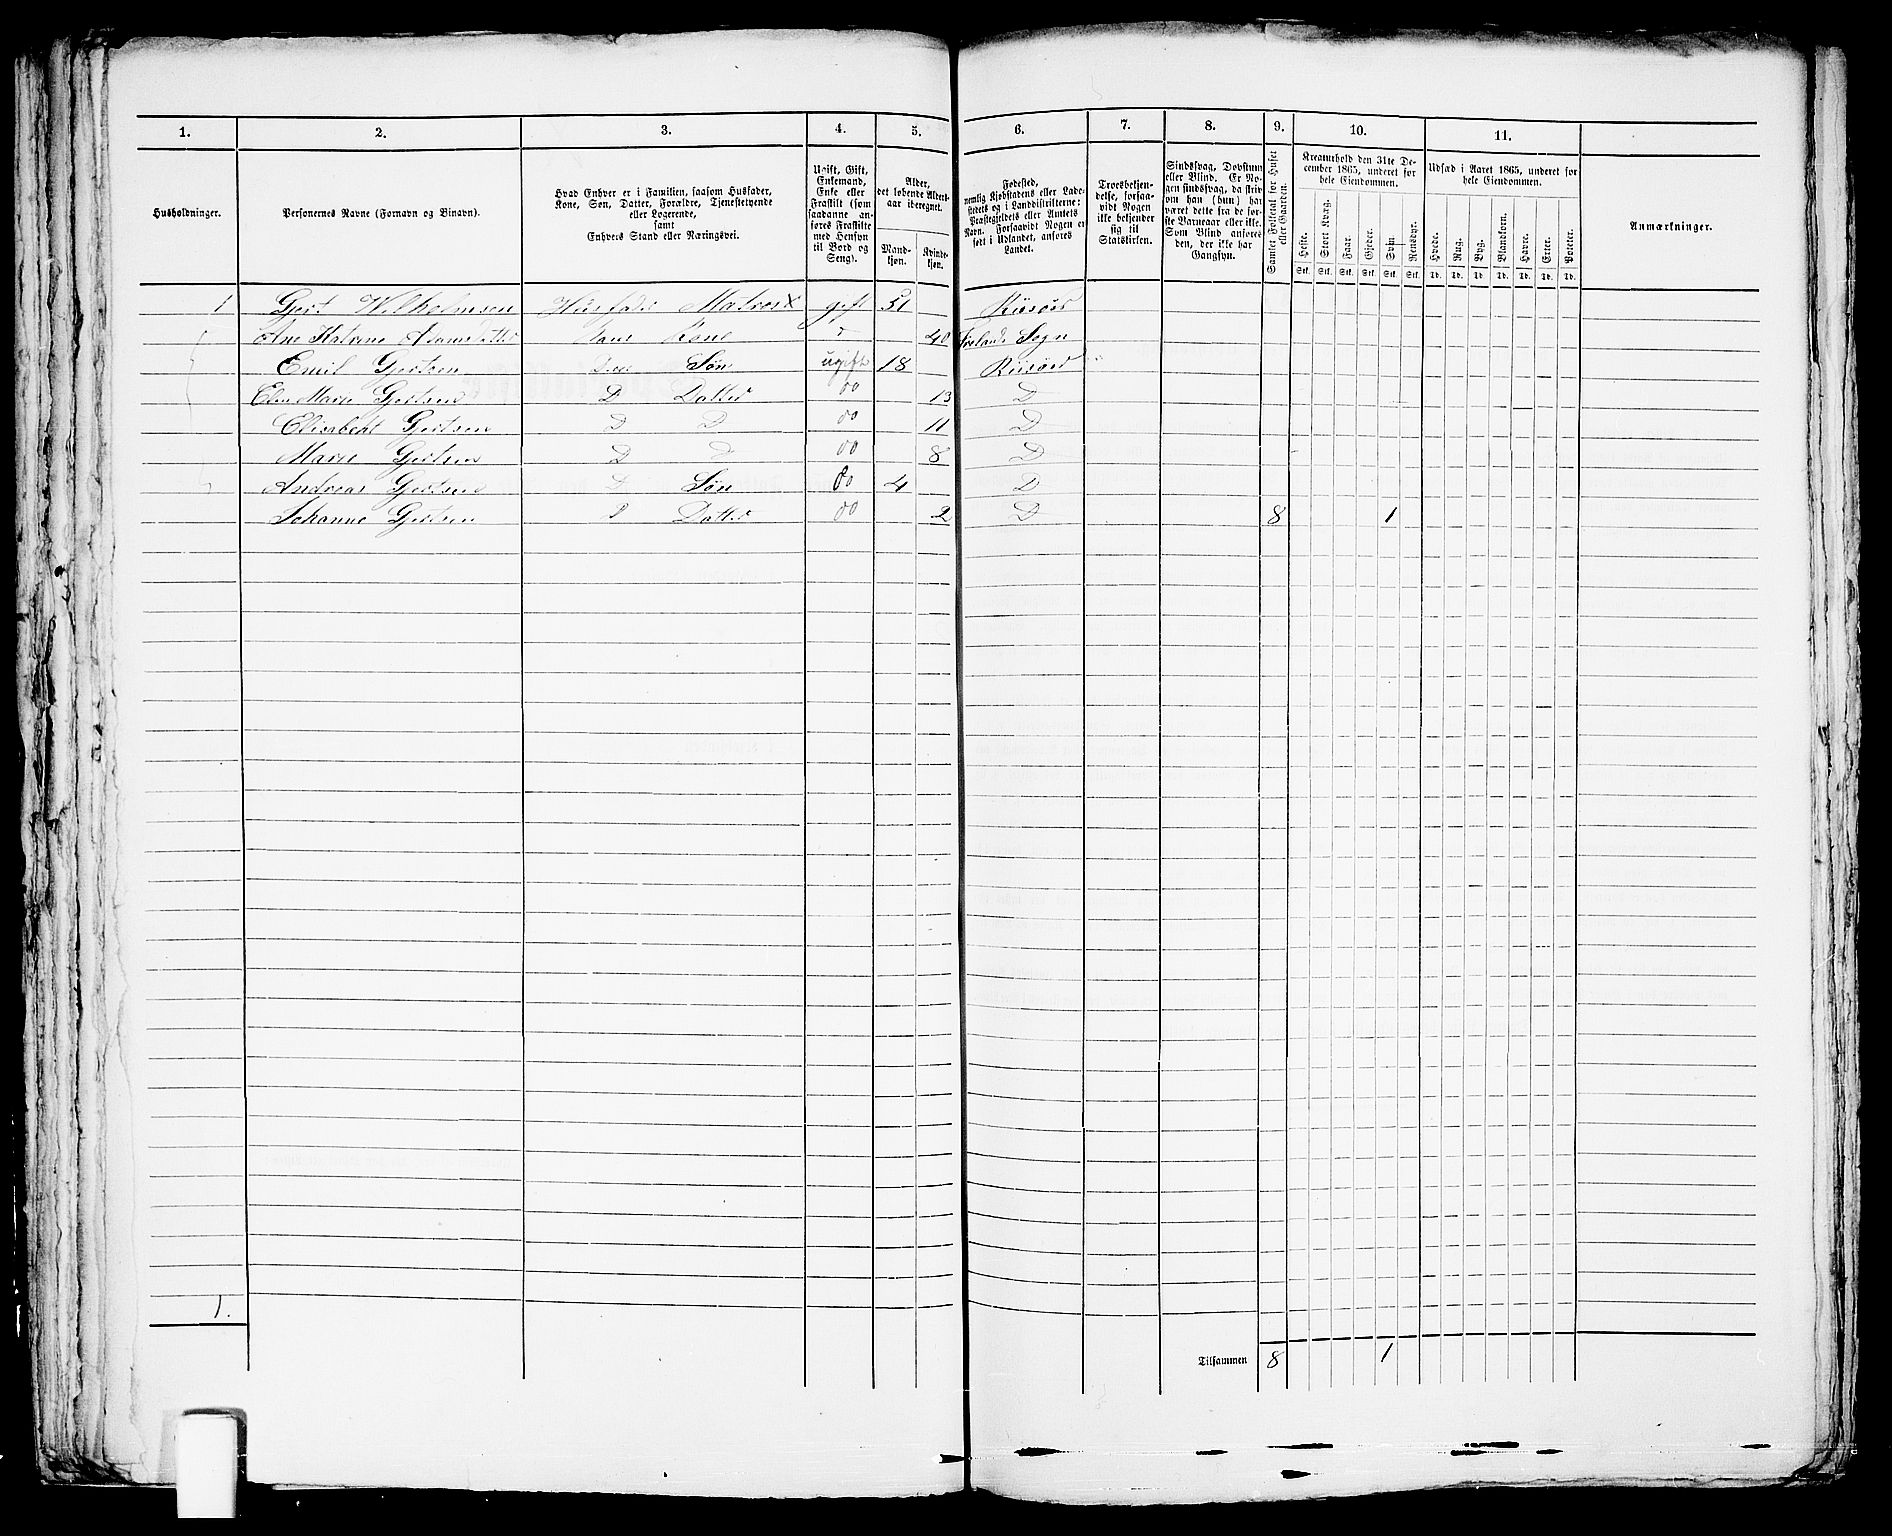 1. 2. 3. 4. 5. 6. 7. 8. 9. 10. 11.
Husholdninger.
Personernes Navne (Fornavn og Binavn).
Hvad Enhver er i Familien, saasom Husfader,
Kone, Søn, Datter, Forældre, Tjenestetyende
eller Logerende,
samt
Enhvers Stand eller Næringsvei.
Ugift, Gift,
Enkemand,
Enke eller
Fraskilt (som
saadanne an-
føres Fraskilte
med Hensyn
til Bord og
Seng).
Alder,
det løbende Alders-
aar iberegnet.
Mand-
kjøn.
Kvinde-
kjøn.
Fødested,
nemlig Kjøbstadens eller Lade-
stedets og i Landdistrikterne:
Præstegjeldets eller Amtets
Navn. Forsaavidt Nogen er
født i Udlandet, anføres
Landet.
Troesbekjen-
delse, forsaa-
vidt Nogen
ikke bekjender
sig til
Statskirken.
Sindssvag, Døvstum
eller Blind. Er No-
gen sindssvag, da skriv
om han (hun) har
været dette fra de før-
ste Barneaar eller ikke.
Som Blind anføres
den, der ikke har
Gangsyn.
Samlet Folketal for Huset
eller Gaarden.
Kreaturhold den 31te De-
cember 1865, underet for
hele Eiendommen.
Heste. Stort Kvæg. Faar. Gjeder. Svin. Rensdyr.
Stk. Stk. Stk. Stk. Stk. Stk.
Udsæd i Aaret 1865, underet for
hele Eiendommen.
Hvede. Rug. Byg. Blandkorn. Havre. Erter. Poteter.
Td. Td. Td. Td. Td. Td. Td.
Anmærkninger.
1 Gjert Wilhelmsen Husfader Matros X gift 51 Riisøer
Ane Katrine Adamsdatter Hans Kone D 40 Sogn
Emil Gjertsen Søn ugift 18 Riisøer
Elen Marie Gjertsen D Datter do 13 D
Elisabeht Gjertsen D D do 11 D
Marie Gjertsen D D do 8 D
Andreas Gjertsen D Søn do 4 D
Johanne Gjertsen D Datter do 2 D 8 1
1.
Tilsammen 8 1